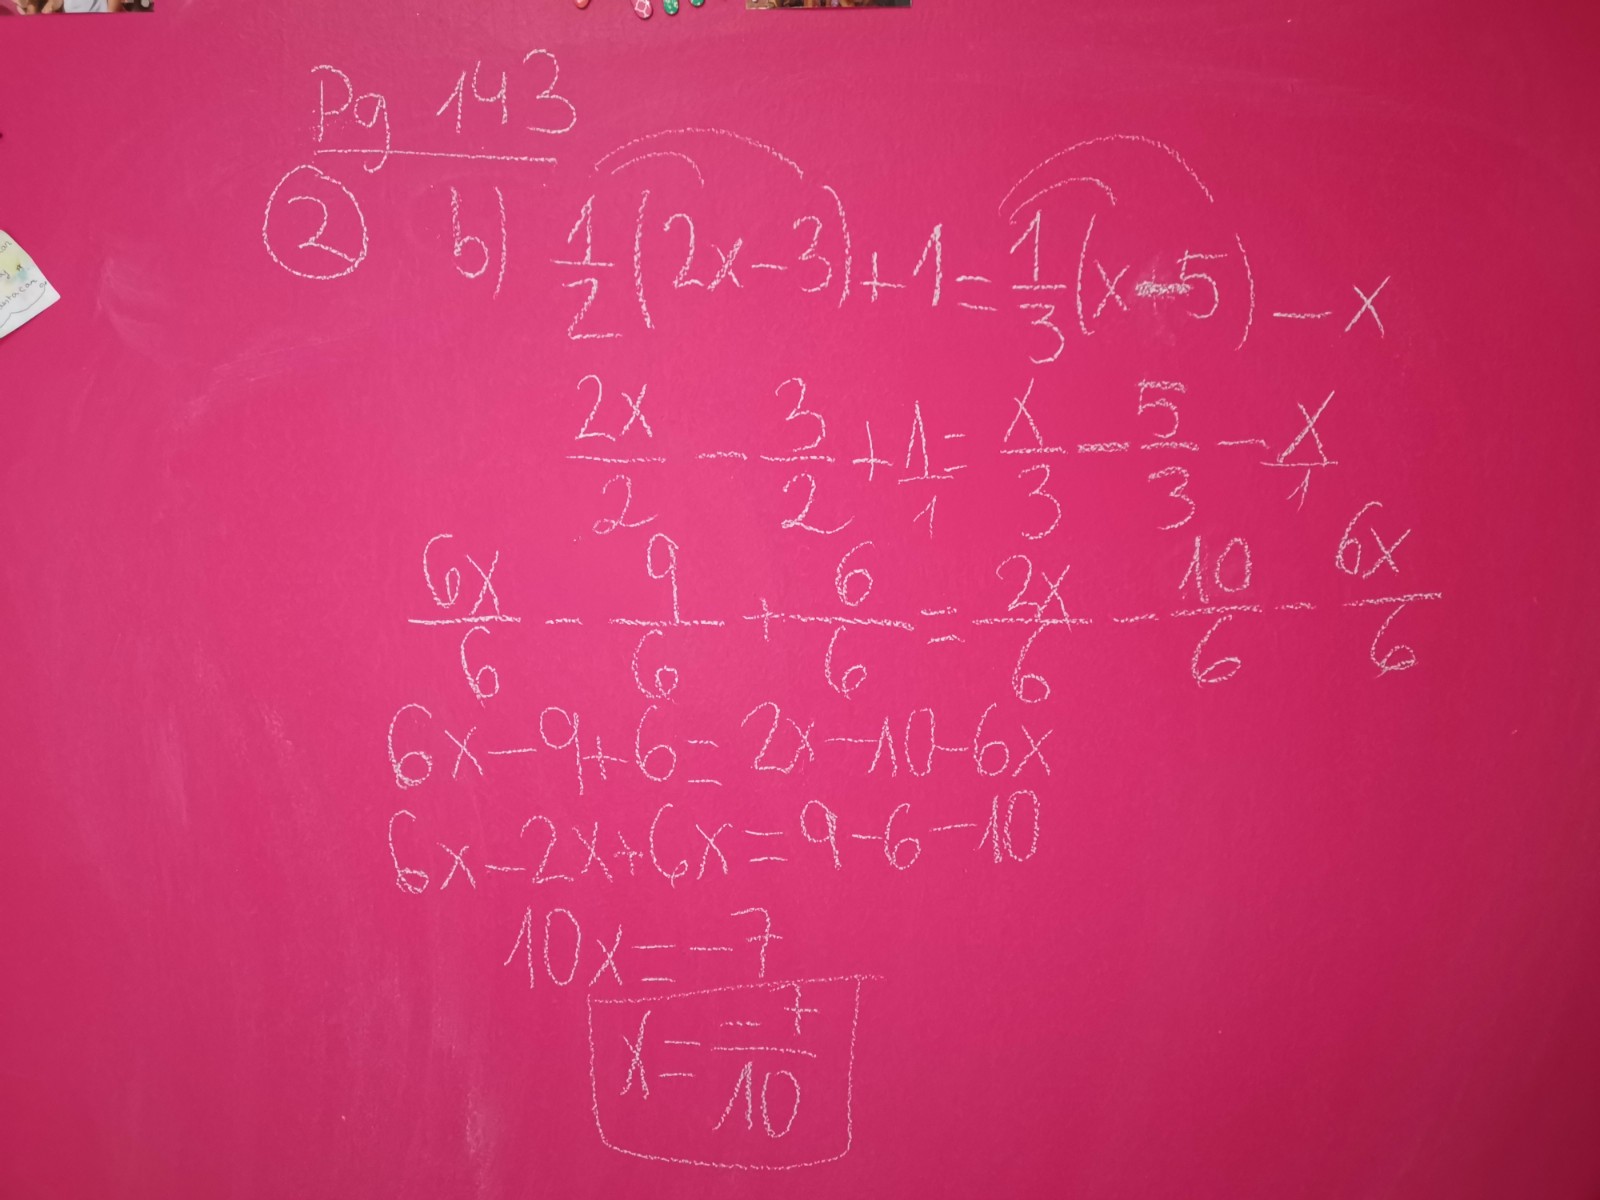 Pg 143
② b) 1/2 (2x - 3) + 1 = 1/3 (x - 5) - x
2x/2 - 3/2 + 1/1 = x/3 - 5/3 - x/1
6x/6 - 9/6 + 6/6 = 2x/6 - 10/6 - 6x/6
6x - 9 + 6 = 2x - 10 - 6x
6x - 2x + 6x = 9 - 6 - 10
10x = -7
x = -7/10